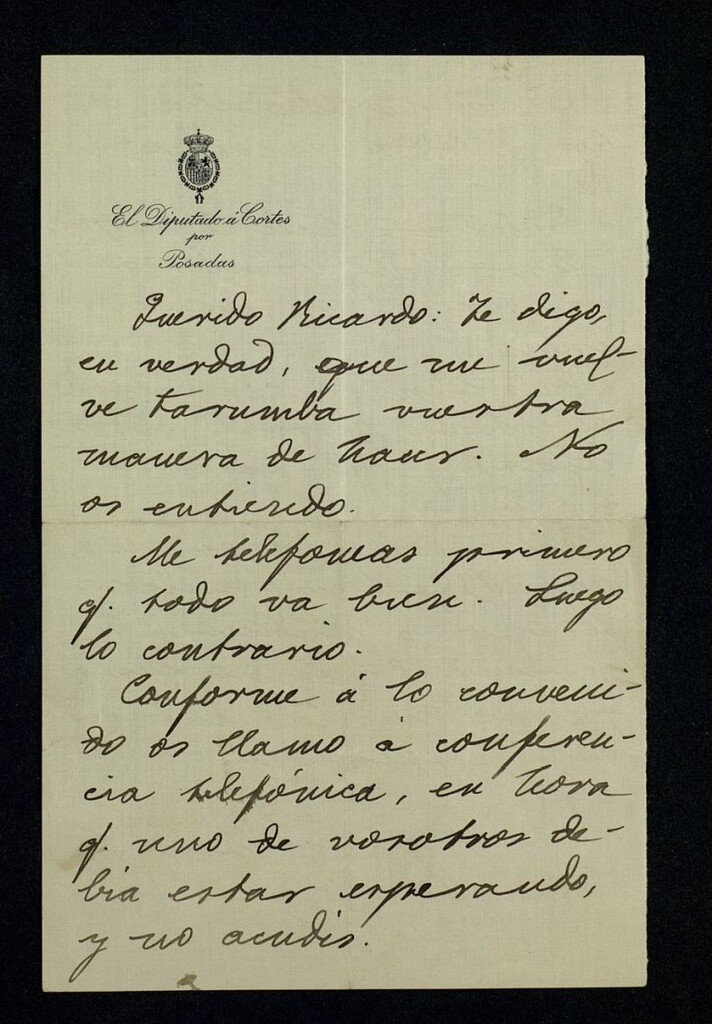 El Diputado á Cortes
por
Posadas
Querido Ricardo: Te digo,
en verdad, que me vuel-
ve tarumba vuestra
manera de hacer. No
os entiendo.
Me telefoneas primero
q. todo va bien. Luego
lo contrario.
Conforme á lo conveni-
do os llamo á conferen-
cia telefónica, en hora
q. uno de vosotros de-
bia estar esperando,
y no acudís.